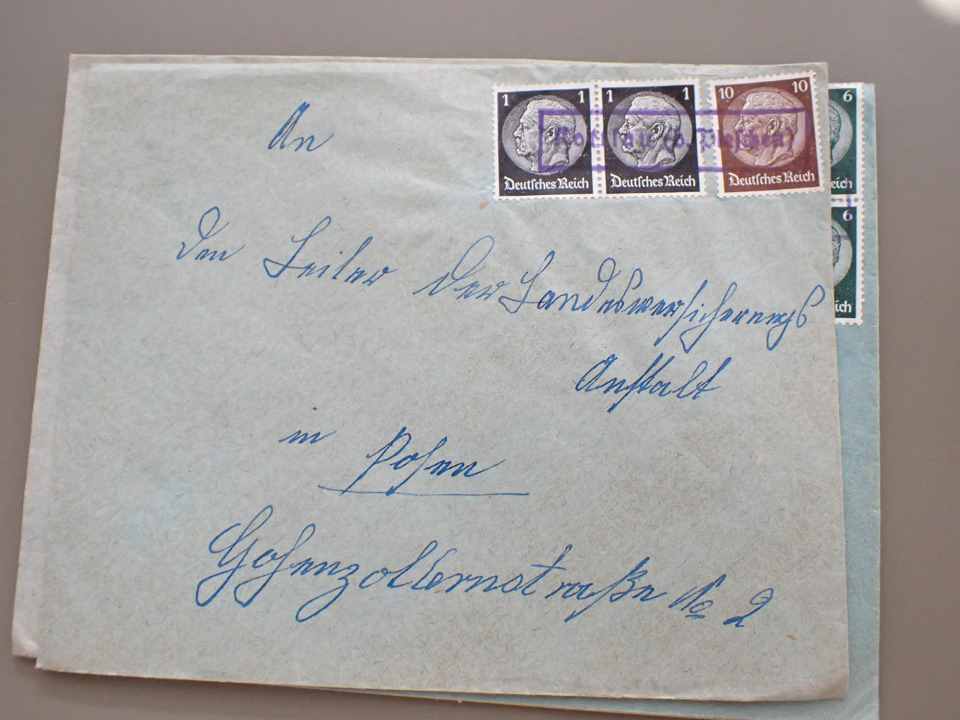 1 1 1 1 10 10
Deutsches Reich Deutsches Reich Deutsches Reich
6
6
An
Den Leiter der Landesversicherungs
Anstalt
in Posen
Hohenzollernstraße No 2